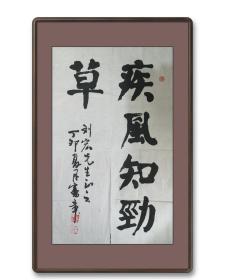 疾風知勁
草
刘宏先生正之
丁卯夏月